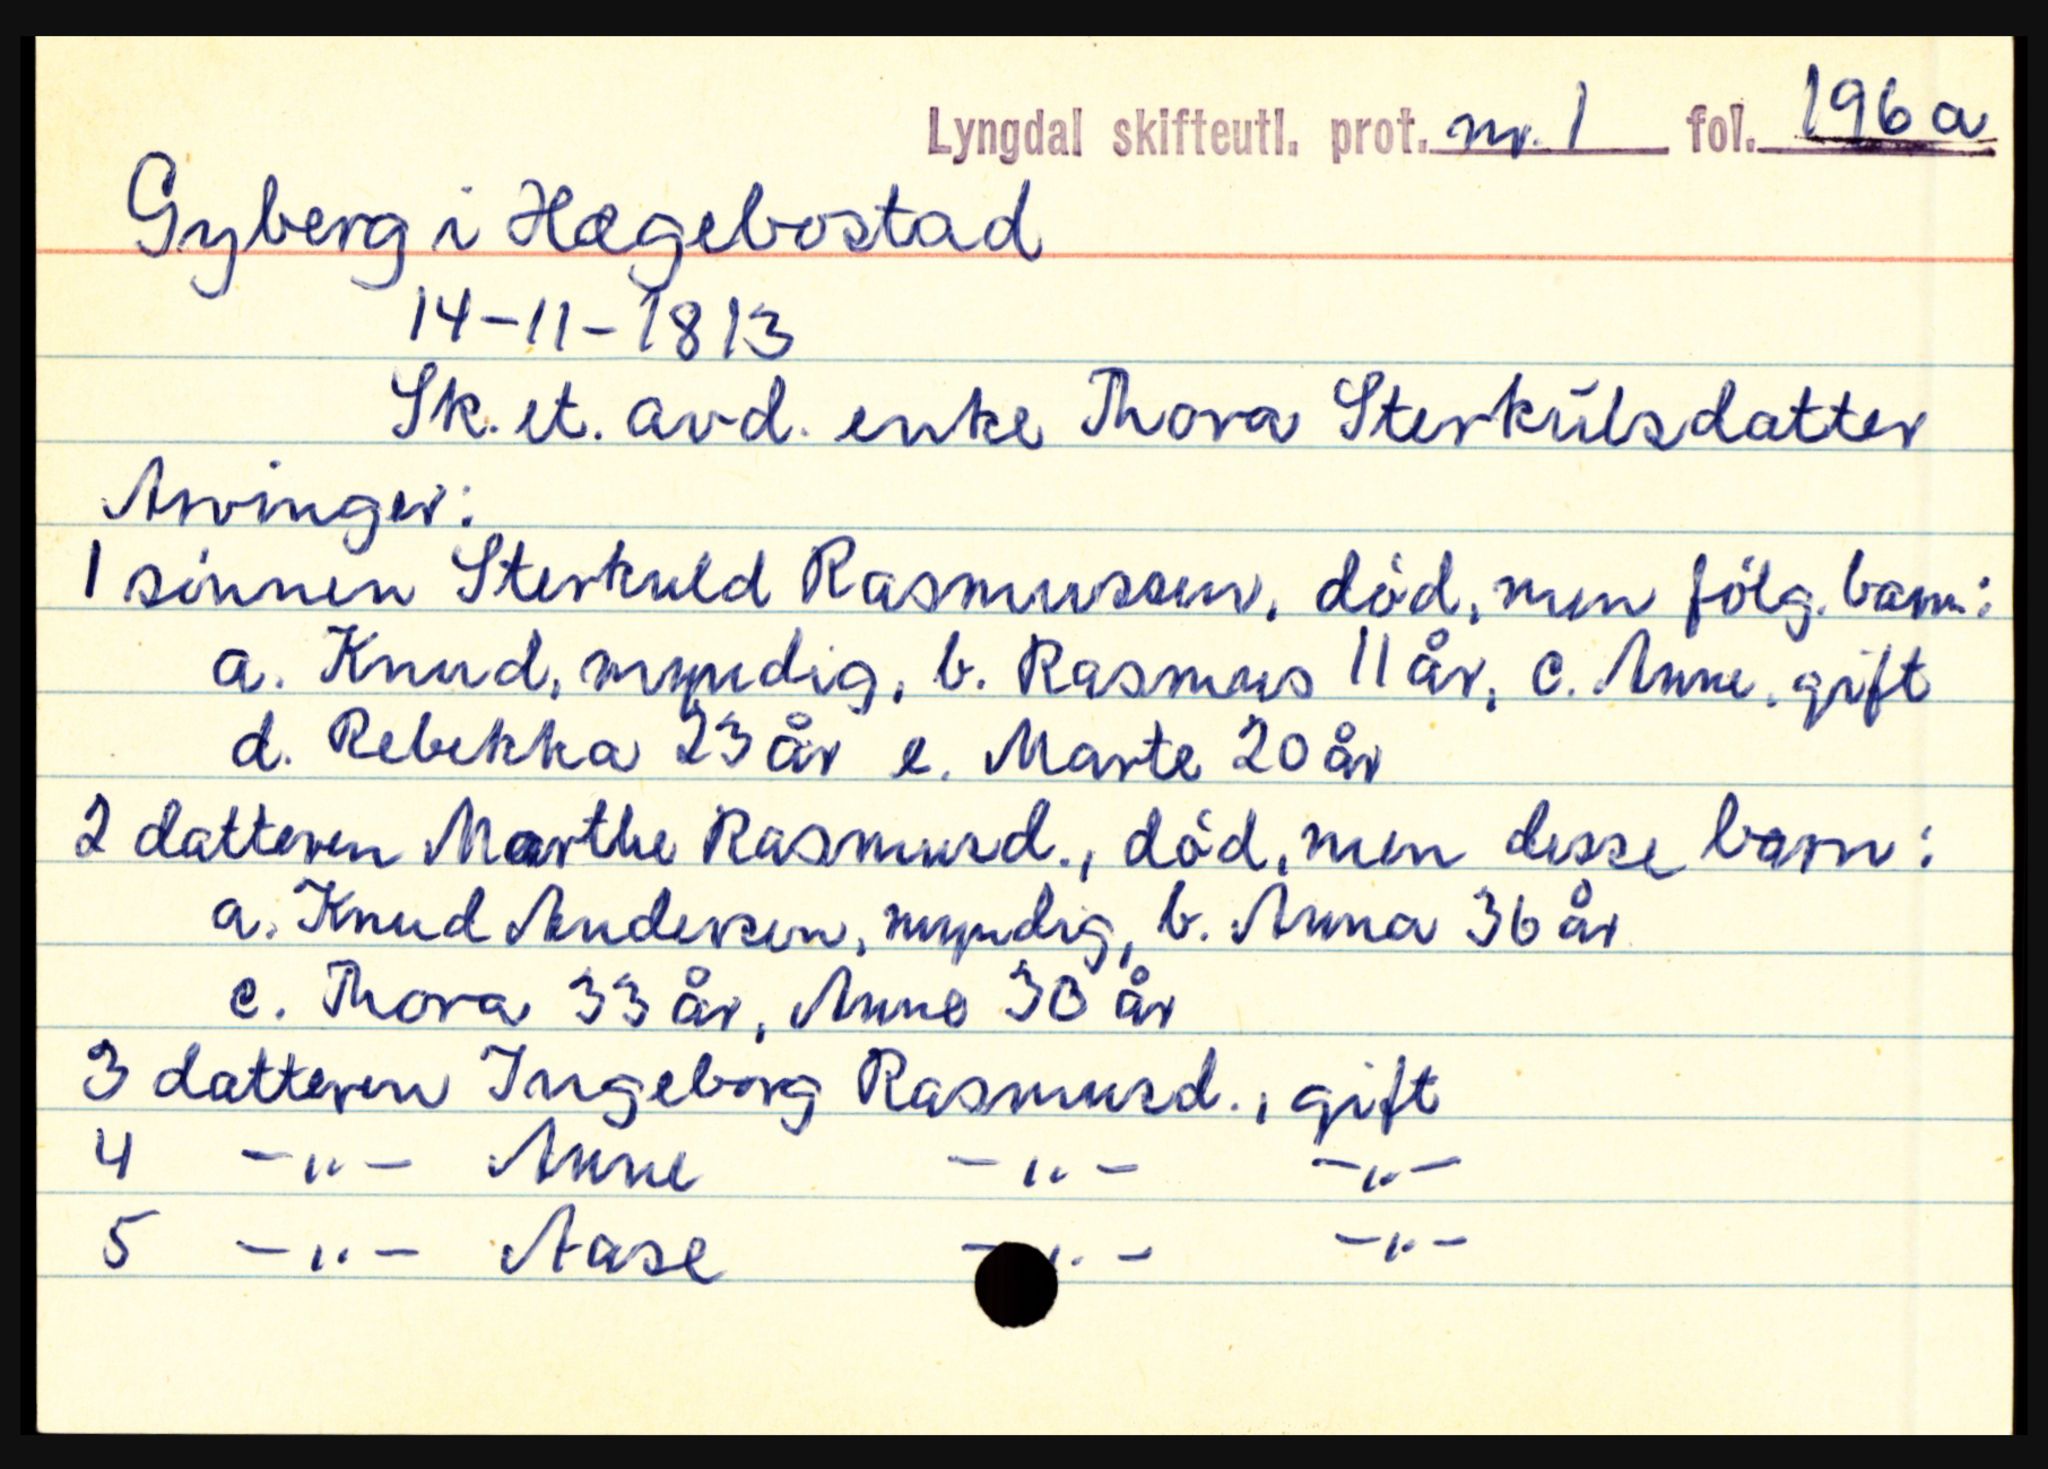 Lyngdal skifteutl. prot. nr. 1 fol. 196 a
Gyberg i Hægebostad
14-11-1813
Sk. et. avd. enke Thora Sterkúlsdatter
Arvinger:
1 sönnen Sterkuld Rasmussen, död, men fölg. barn:
a. Knud, myndig, b. Rasmus 11 år, c. Anne, gift
d. Rebekka 23 år e. Marte 20 år
2 datteren Marthe Rasmusd., död, men desse barn:
a. Knud Andersen, myndig, b. Anna 36 år
c. Thora 33 år, Anne 30 år
3 datteren Ingeborg Rasmusd., gift
4 -"- Anne -"- -"-
5 -"- Aase -"- -"-